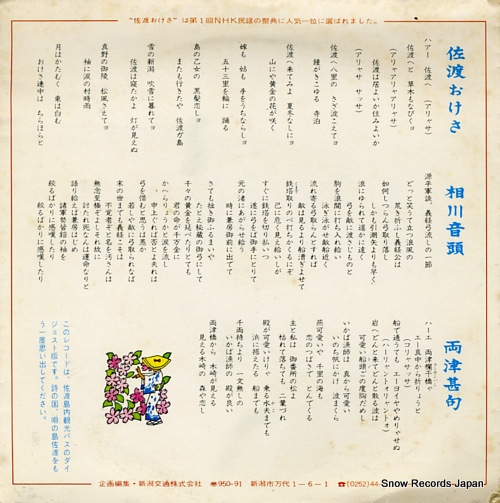 "佐渡おけさ"は第1回NHK民謡の祭典に人気一位に選ばれました。
佐渡おけさ
ハアー 佐渡へ (アリャサ)
佐渡へと 草木もなびくヨ
(アリャアリャアリャサ)
佐渡は居よいか住みよいか
(アリャサ サッサ)
佐渡へ八里の さざ波こえてヨ
鐘がきこゆる 寺泊
佐渡へ来てみよ 夏冬なしにヨ
山にや黄金の花が咲く
嫁も 姑も 手をうちならしヨ
五十三里を輪に踊る
島の乙女の 黒髪恋しヨ
またも行きたや 佐渡ガ島
雪の新潟 吹雪に暮れてヨ
佐渡は寝たかよ 灯が見えぬ
真野の御陵 松風さえてヨ
袖に涙の村時雨
月はかたむく 東は白む
おけさ連中は ちらほらと
相川音頭
源平軍談、義経弓流しの一節
どっと笑うて立つ浪風の
荒き折ふし義経公は
如何しつらん弓取り落し
しかも引潮矢よりも早く
浪にゆられて遥かに遠く
弓を敵に渡さじものと
駒を浪間に打ち入れ給い
泳ぎ泳がせ敵船近く
流れ寄る弓取らんとすれば
敵は見るより船漕ぎよせて
鉄塔取りのべ打ちかくるにぞ
己に危く見え給いしが
すぐに鉄塔を切り払いつつ
遂に弓をば御手にとりて
元の渚にあがらせ給う
時に兼房御前に出でて
さても拙き御ふるまいや
たとえ秘蔵の御弓にして
千々の黄金を延べたりとても
君の命が千万金に
かへらりょうかと涙を流し
申し上ぐれば否とよそれは
弓を惜むと思うは愚か
若しや敵に弓取られなば
末の世までも義経こそは
不覚者ぞと名を汚さんは
無念至極ぞよしそれ故に
討たれ死なんは運命なりと
語り給えば兼房はじめ
諸軍勢皆鎧の袖を
絞るばかりに感嘆したり
絞るばかりに感嘆したり
両津甚句
ハーエ 両津欄干橋や
エー真中から折りょうと
(コリャサ)
船で通うても エーヨイヤやめりゃせぬ
(ハーコリャコリャコリャントォ)
岩へどんと来てどんと散る波は
可愛い船頭この度胸だめし
いかば漁師は 真から可愛い
いのち帆にかけ 波まくら
燕可愛いや 千里の海も
恋のつばさで とんでくる
主と私は 御番所の松よ
枯れて落ちても 二葉づれ
殿が可愛いけりゃ 乗る水夫までも
浜に据えたる 船までも
千両持ちより 一文無しの
いかば漁師の 殿が良い
両津橋から 木崎が見える
見える木崎の 森や恋し
このレコードは、佐渡島内観光バスのダイ
ジェスト版です。詩の国、唄の島佐渡をも
う一度思い出してください。
企画編集・新潟交通株式会社 〒950-91 新潟市万代1-6-1 ☎(0252)44
Snow Records Japan